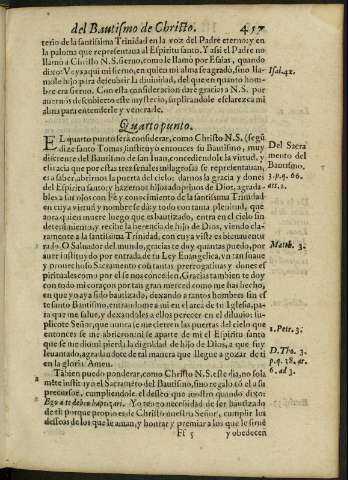 del Bautismo de Christo. 457
terio de la santissima Trinidad en la voz del Padre eterno, y en
la paloma que representaua al Espiritu santo. Y assi el Padre no
llamò a Christo N.S. sieruo, como le llamò por Esaias, quando
dixo: Veys aqui mi sieruo, en quien mi alma se agradó, sino lla-
mole hijo para descubrir la diuinidad, del que en quanto hom-
bre era sieruo. Con esta consideracion darè gracias a N.S. por
auernos descubierto este mysterio, suplicandole esclarezca mi
alma para entenderle y venerarle.
Isai.42.
Quarto punto.
EL quarto punto serà considerar, como Christo N.S. (segũ
dize santo Tomas) instituyò entonces su Bautismo, muy
diferente del Bautismo de san Iuan, concediendole la virtud, y
eficacia que por estas tres señales milagrosas se representauan,
es a saber, abrirnos la puerta del cielo: darnos la gracia y dones
del Espiritu santo: y hazernos hijos adoptiuos de Dios, agrada-
bles a sus ojos con Fè y conocimiento de la santissima Trinidad
en cuya virtud y nombre se da: y todo con tanta plenitud, que
aora quien muere luego que es bautizado, entra en el cielo sin
detenimiento, y recibe la herencia de hijo de Dios, viendo cla-
ramente a la santissima Trinidad, con cuya vista es bienauentu-
rado. O Saluador del mundo, gracias te doy quantas puedo, por
auer instituydo por entrada de tu Ley Euangelica, vn tan suaue
y prouechoso Sacramento con tantas prerrogatiuas y dones es-
pirituales como por el se nos conceden. Gracias tambien te doy
con todo mi coraçon por tan gran merced como me has hecho,
en que yo aya sido bautizado, dexando a tantos hombres sin es-
te santo Bautismo, entrandome a mi en el arca de tu Iglesia, pa-
ra que me salue, y dexandoles a ellos perecer en el diluuio: su-
plicote Señor, que nunca se me cierren las puertas del cielo que
entonces se me abrieron: ni se aparte de mi el Espiritu santo
que se me dio: ni pierda la dignidad de hijo de Dios, a que fuy
leuantado, agradandote de tal manera que llegue a gozar de ti
en la gloria. Amen.
Del Sacra
mento del
Bautismo.
3.p.q. 66.
art.2.
Matth. 3.
1.Petr.3.
D.Tho. 3.
p.q. 38.ar.
6.ad 3.
Tãbien puedo ponderar, como Christo N.S. este dia, no sola
mẽte instituyò el Sacramẽto del Bautismo, sino regalò cõ el a su
precursor, cumpliendole el desseo que mostrò quando dixo:
Ego a te debeo baptizari. Yo tengo necessidad de ser bautizado
de ti: porque propio es de Christo nuestro Señor, cumplir los
desseos de los que le aman, y honrar y premiar a los que le siruẽ
Ff 5 y obedecen